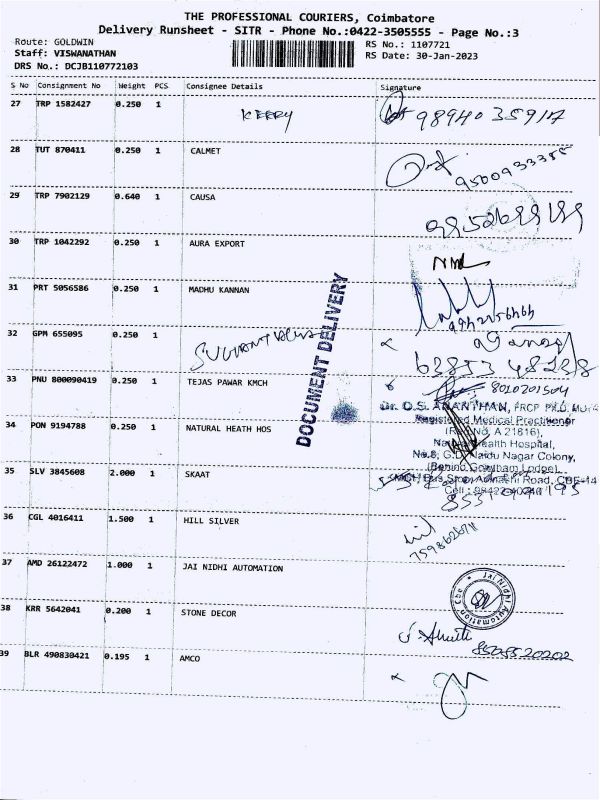 THE PROFESSIONAL COURIERS, Coimbatore
Delivery Runsheet - SITR - Phone No.:0422-3505555 - Page No.:3
Route: GOLDWIN
RS No.: 1107721
Staff: VISWANATHAN
RS Date: 30-Jan-2023
DRS No.: DCJB110772103
S No Consignment No Weight PCS Consignee Details Signature
27 TRP 1582427 0.250 1 KERRY 9894035917
28 TUT 870411 0.250 1 CALMET 9500933355
29 TRP 7902129 0.640 1 CAUSA
30 TRP 1042292 0.250 1 AURA EXPORT
31 PRT 5056586 0.250 1 MADHU KANNAN
32 GPM 655095 0.250 1
DOCUMENT DELIVERY
33 PNU 800090419 0.250 1 TEJAS PAWAR KMCH 8010201504
Dr. O.S. ANANTHAN, FRCP
Registered Medical Practitioner
(Reg. No. A 21816),
34 PON 9194788 0.250 1 NATURAL HEATH HOS
Natural Health Hospital,
No.8, G.D. Naidu Nagar Colony,
(Behind Gowtham Lodge),
35 SLV 3845608 2.000 1 SKAAT
KMCH Bus Stop, Avinashi Road, CBE-14
36 CGL 4016411 1.500 1 HILL SILVER
37 AMD 26122472 1.000 1 JAI NIDHI AUTOMATION
Jai Nidhi Automation
Cbe
38 KRR 5642041 0.200 1 STONE DECOR
39 BLR 490830421 0.195 1 AMCO